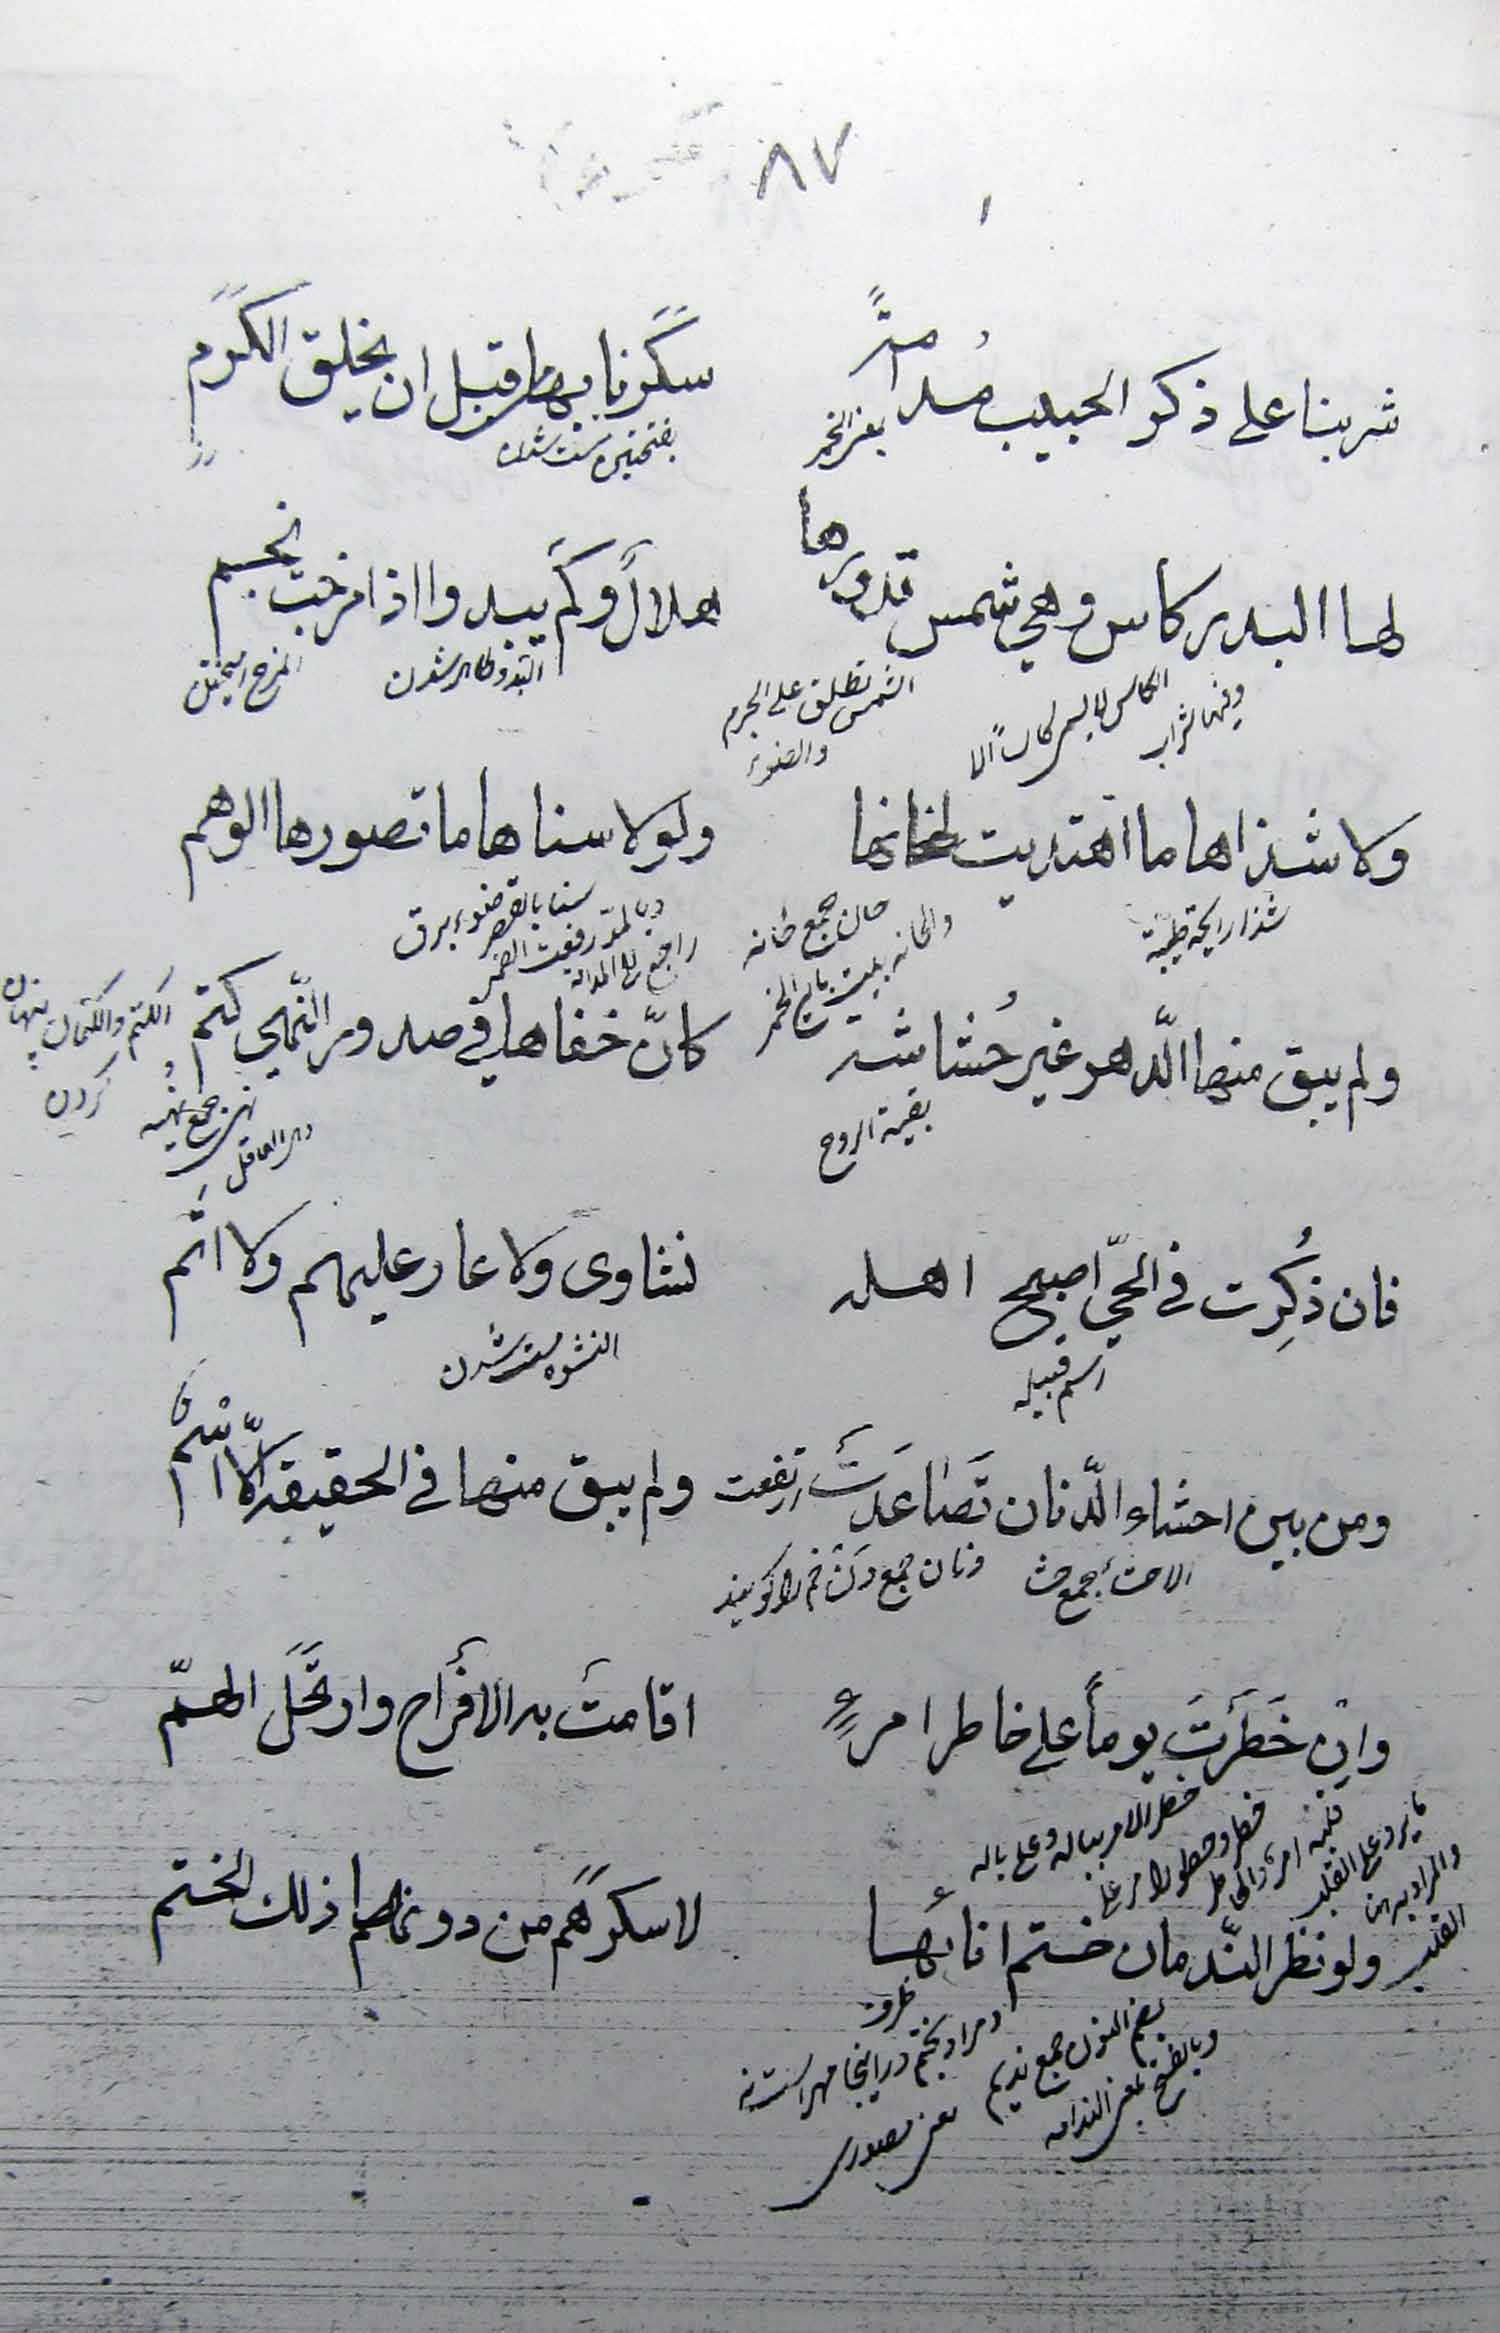 ٨٧
شربنا على ذكر الحبيب مُدامةً سَكَرنا بها قبل ان يخلق الكَرَم
يعنى الخمر بفتحتين مست شدن رز
لها البدر كاس وهي شمس تديرها هلال وكم يبدو اذا مزجت نجم
وفيها شراب الكاس لا يسمى كاساً الا الشمس تطلق على الجرم والضوء البدو ظاهر شدن المزج آميختن
ولا شذاها ما اهتديت لحانها ولولا سناها ما تصورها الوهم
شذا رايحة طيبة حان جمع حانه والحانه بيت بايع الخمر سنا بالقصر ضوء برق وبالمد رفعت الضمير راجع الى المدامه
ولم يبق منها الدّهر غير حُشاشة كانّ خفاها في صدور النّهى كتم
بقية الروح نهى جمع نهيه وهى العاقل الكتم والكتمان پنهان كردن
فان ذُكِرت في الحيّ اصبح اهله نشاوى ولا عار عليهم ولا اثم
اسم قبيله النشوه مست شدن
ومن بين احشاء الدّنان تَصَاعَدَتْ ارتفعت ولم يبق منها في الحقيقة الّا اسْم
الاحشاء جمع حشا دنان جمع دَنّ خم را گويند
وان خَطَرَتْ يوماً على خاطر امرءٍ اقامت به الافراح وارتَحَلَ الهمّ
خطر الامر بباله وعلى باله
ما يرد على القلب والمراد به هنا القلب
ولو نظر النّدمان ختم انائها لاسكرَهُم من دونها ذلك الختم
ظرف
بضم النون جمع نديم وبالفتح بمعنى الندامه
ومراد بختم در اينجا مهر است نه معنى مصدرى